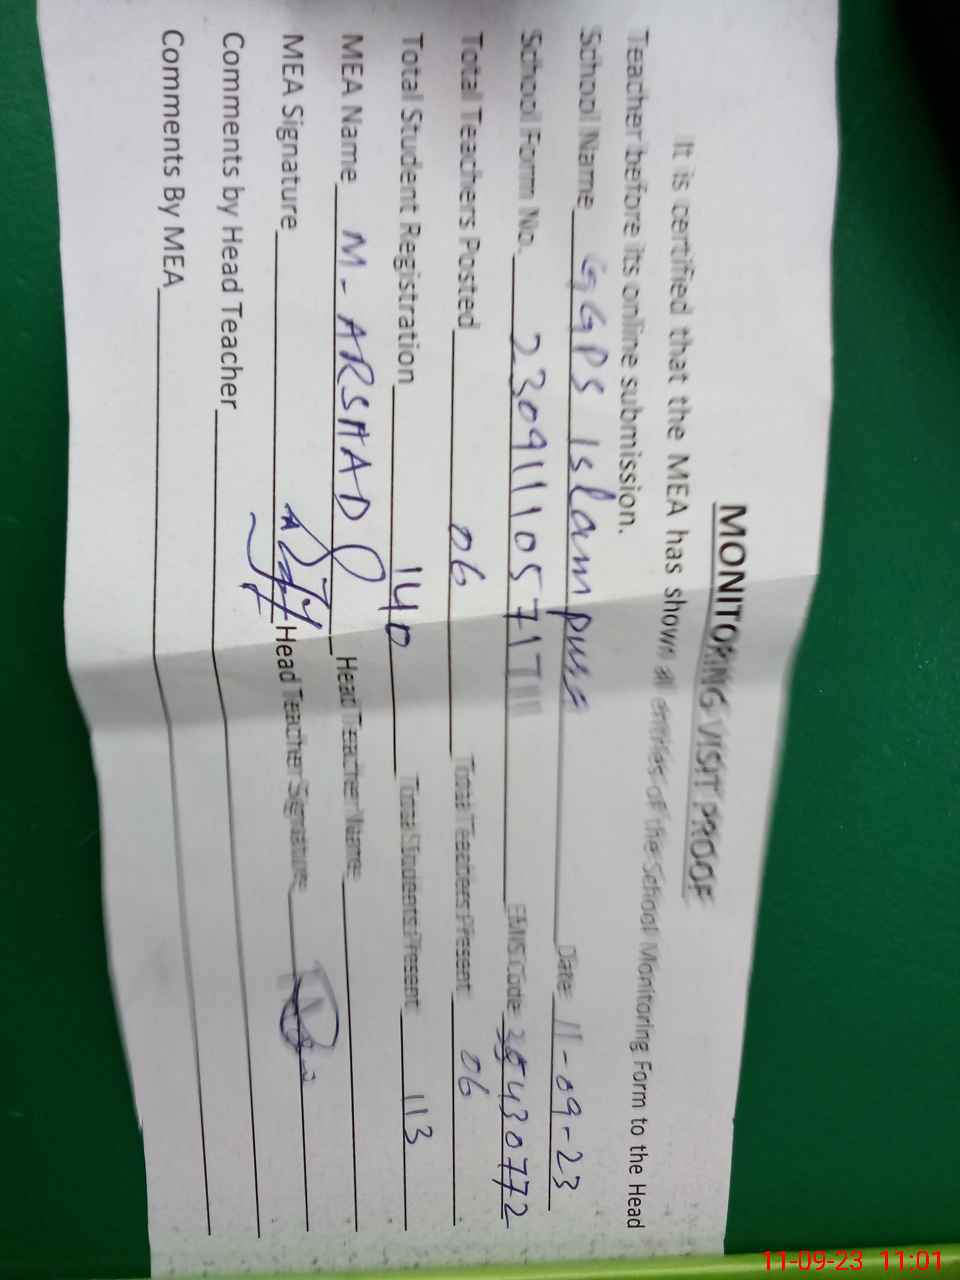 MONITORING VISIT PROOF
It is certified that the MEA has shown all entries of the School Monitoring Form to the Head
Teacher before its online submission.
School Name GGPS Islampura Date: 11-09-23
School Form No. 23091110571711 EMIS Code 35430772
Total Teachers Posted 06 Total Teachers Present 06
Total Student Registration 140 Total Students Present 113
MEA Name M-ARSHAD Head Teacher Name:
MEA Signature Head Teacher Signature
Comments by Head Teacher
Comments By MEA
11-09-23 11:01